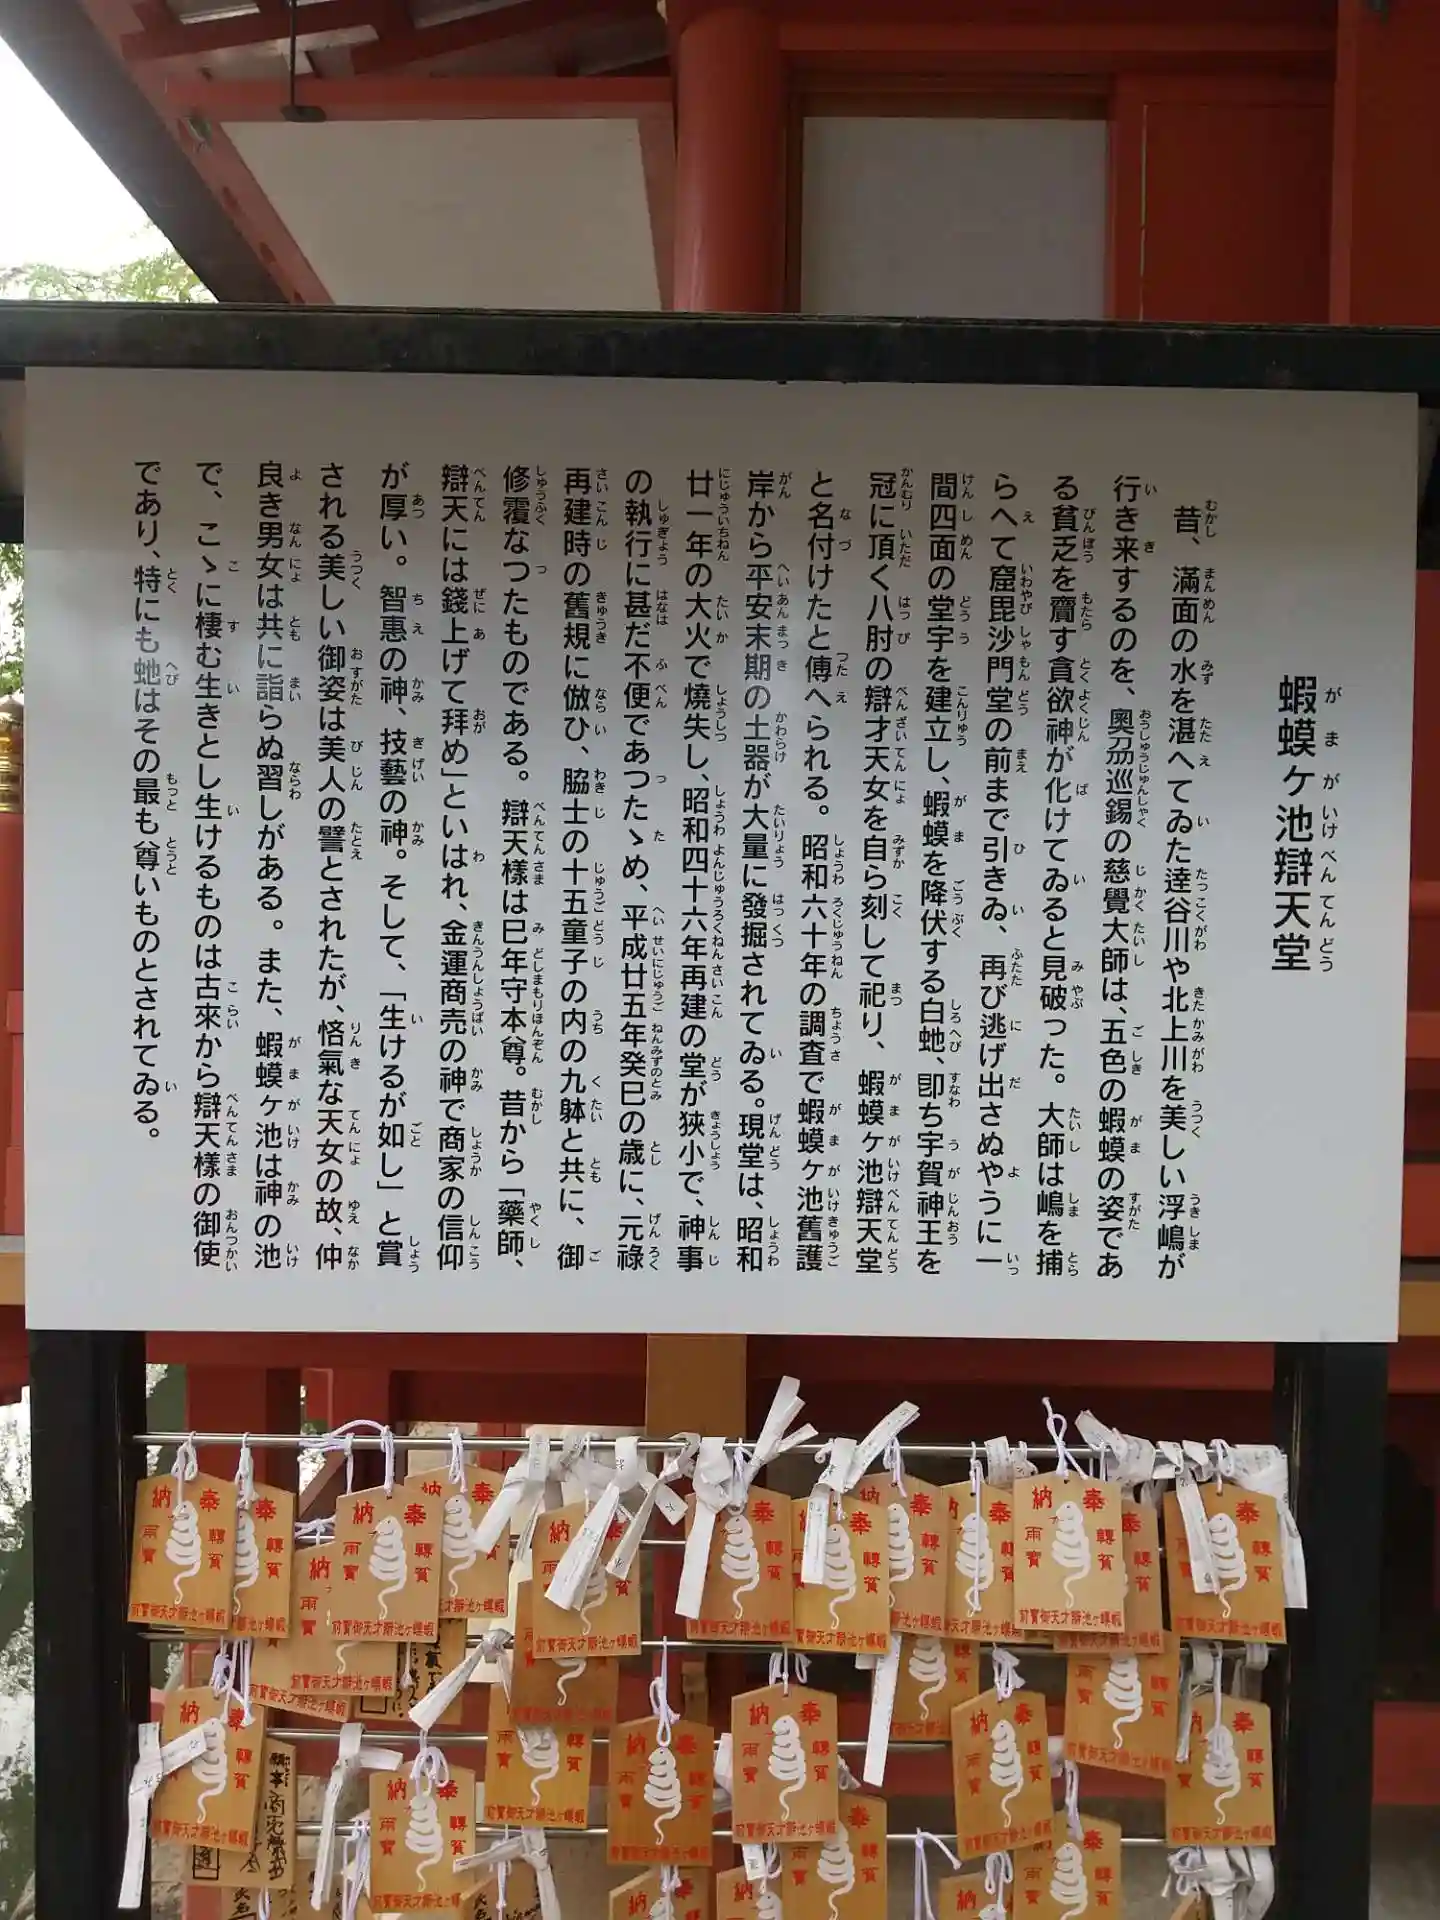 蝦蟆ヶ池辯天堂
昔、滿面の水を湛へてゐた達谷川や北上川を美しい浮嶋が
行き来するのを、奧刕巡錫の慈覺大師は、五色の蝦蟆の姿であ
る貧乏を齎す貪欲神が化けてゐると見破った。大師は嶋を捕
らへて窟毘沙門堂の前まで引きゐ、再び逃げ出さぬやうに一
間四面の堂宇を建立し、蝦蟆を降伏する白虵、卽ち宇賀神王を
冠に頂く八肘の辯才天女を自ら刻して祀り、蝦蟆ヶ池辯天堂
と名付けたと傳へられる。昭和六十年の調査で蝦蟆ヶ池舊護
岸から平安末期の土器が大量に發掘されてゐる。現堂は、昭和
廿一年の大火で燒失し、昭和四十六年再建の堂が狹小で、神事
の執行に甚だ不便であつたゝめ、平成廿五年癸巳の歳に、元祿
再建時の舊規に倣ひ、脇士の十五童子の内の九躰と共に、御
修覆なつたものである。辯天樣は巳年守本尊。昔から「藥師、
辯天には錢上げて拜め」といはれ、金運商売の神で商家の信仰
が厚い。智惠の神、技藝の神。そして、「生けるが如し」と賞
される美しい御姿は美人の譬とされたが、悋氣な天女の故、仲
良き男女は共に詣らぬ習しがある。また、蝦蟆ヶ池は神の池
で、こゝに棲む生きとし生けるものは古來から辯天樣の御使
であり、特にも虵はその最も尊いものとされてゐる。
奉納
轉貧
雨寶
蝦蟆ヶ池辯才天御寶前